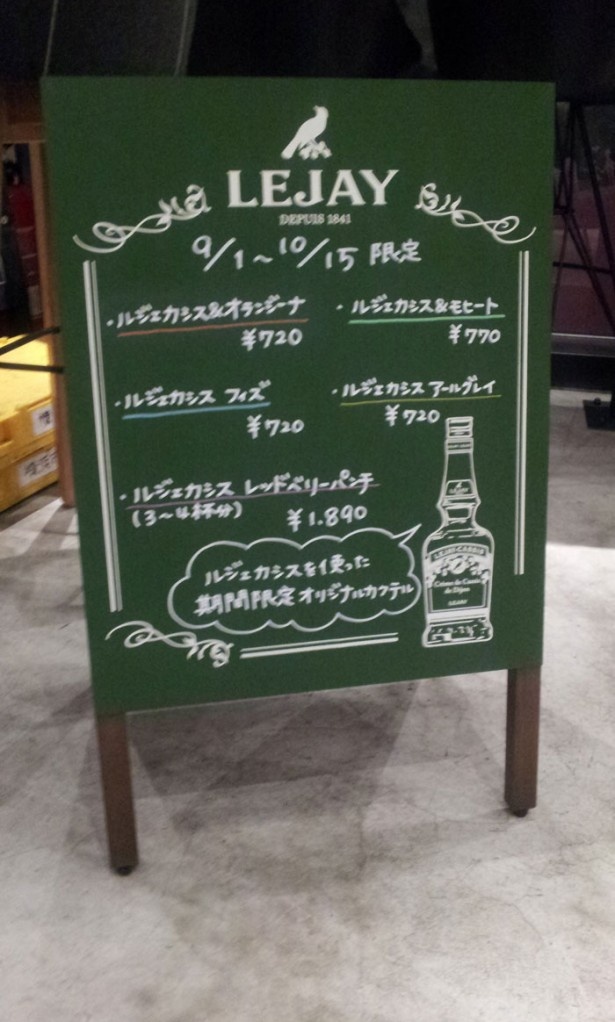 LEJAY
DEPUIS 1841
9/1〜10/15 限定
・ルジェカシス&オランジーナ
¥720
・ルジェカシス&モヒート
¥770
・ルジェカシス フィズ
¥720
・ルジェカシス アールグレイ
¥720
・ルジェカシス レッドベリーパンチ
(3〜4杯分) ¥1.890
ルジェカシスを使った
期間限定オリジナルカクテル
LEJAY-CASSIS
Crème de Cassis
de Dijon
LEJAY